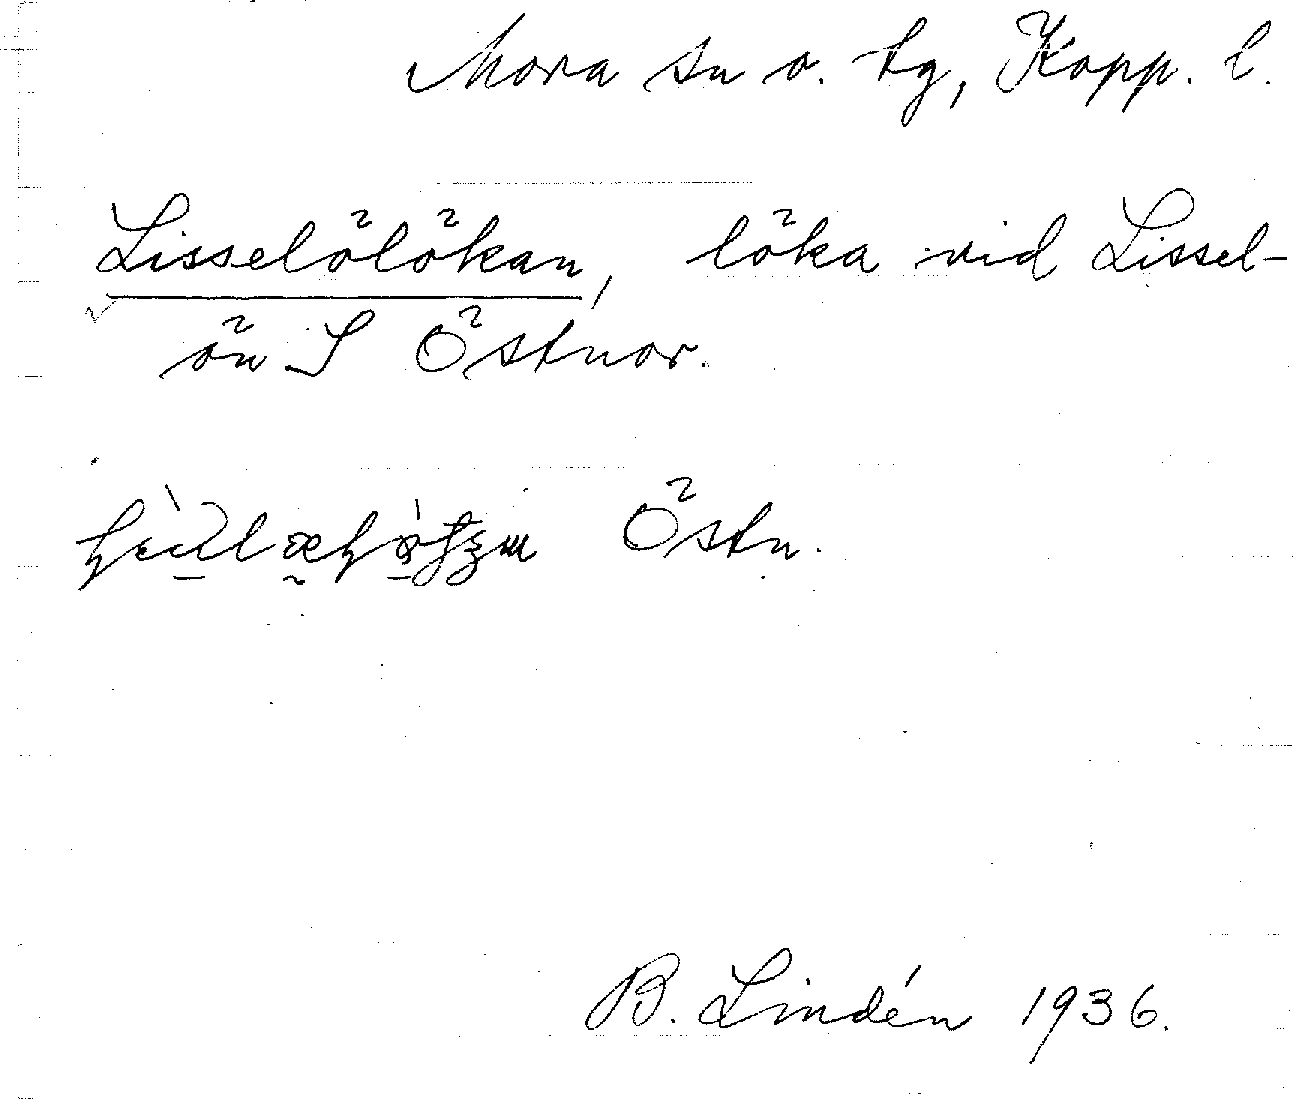 Mora sn o. tg, Kopp. l.
Lisselölökan, löka vid Lissel-
ön S Östnor.
Östn.
B. Lindén 1936.